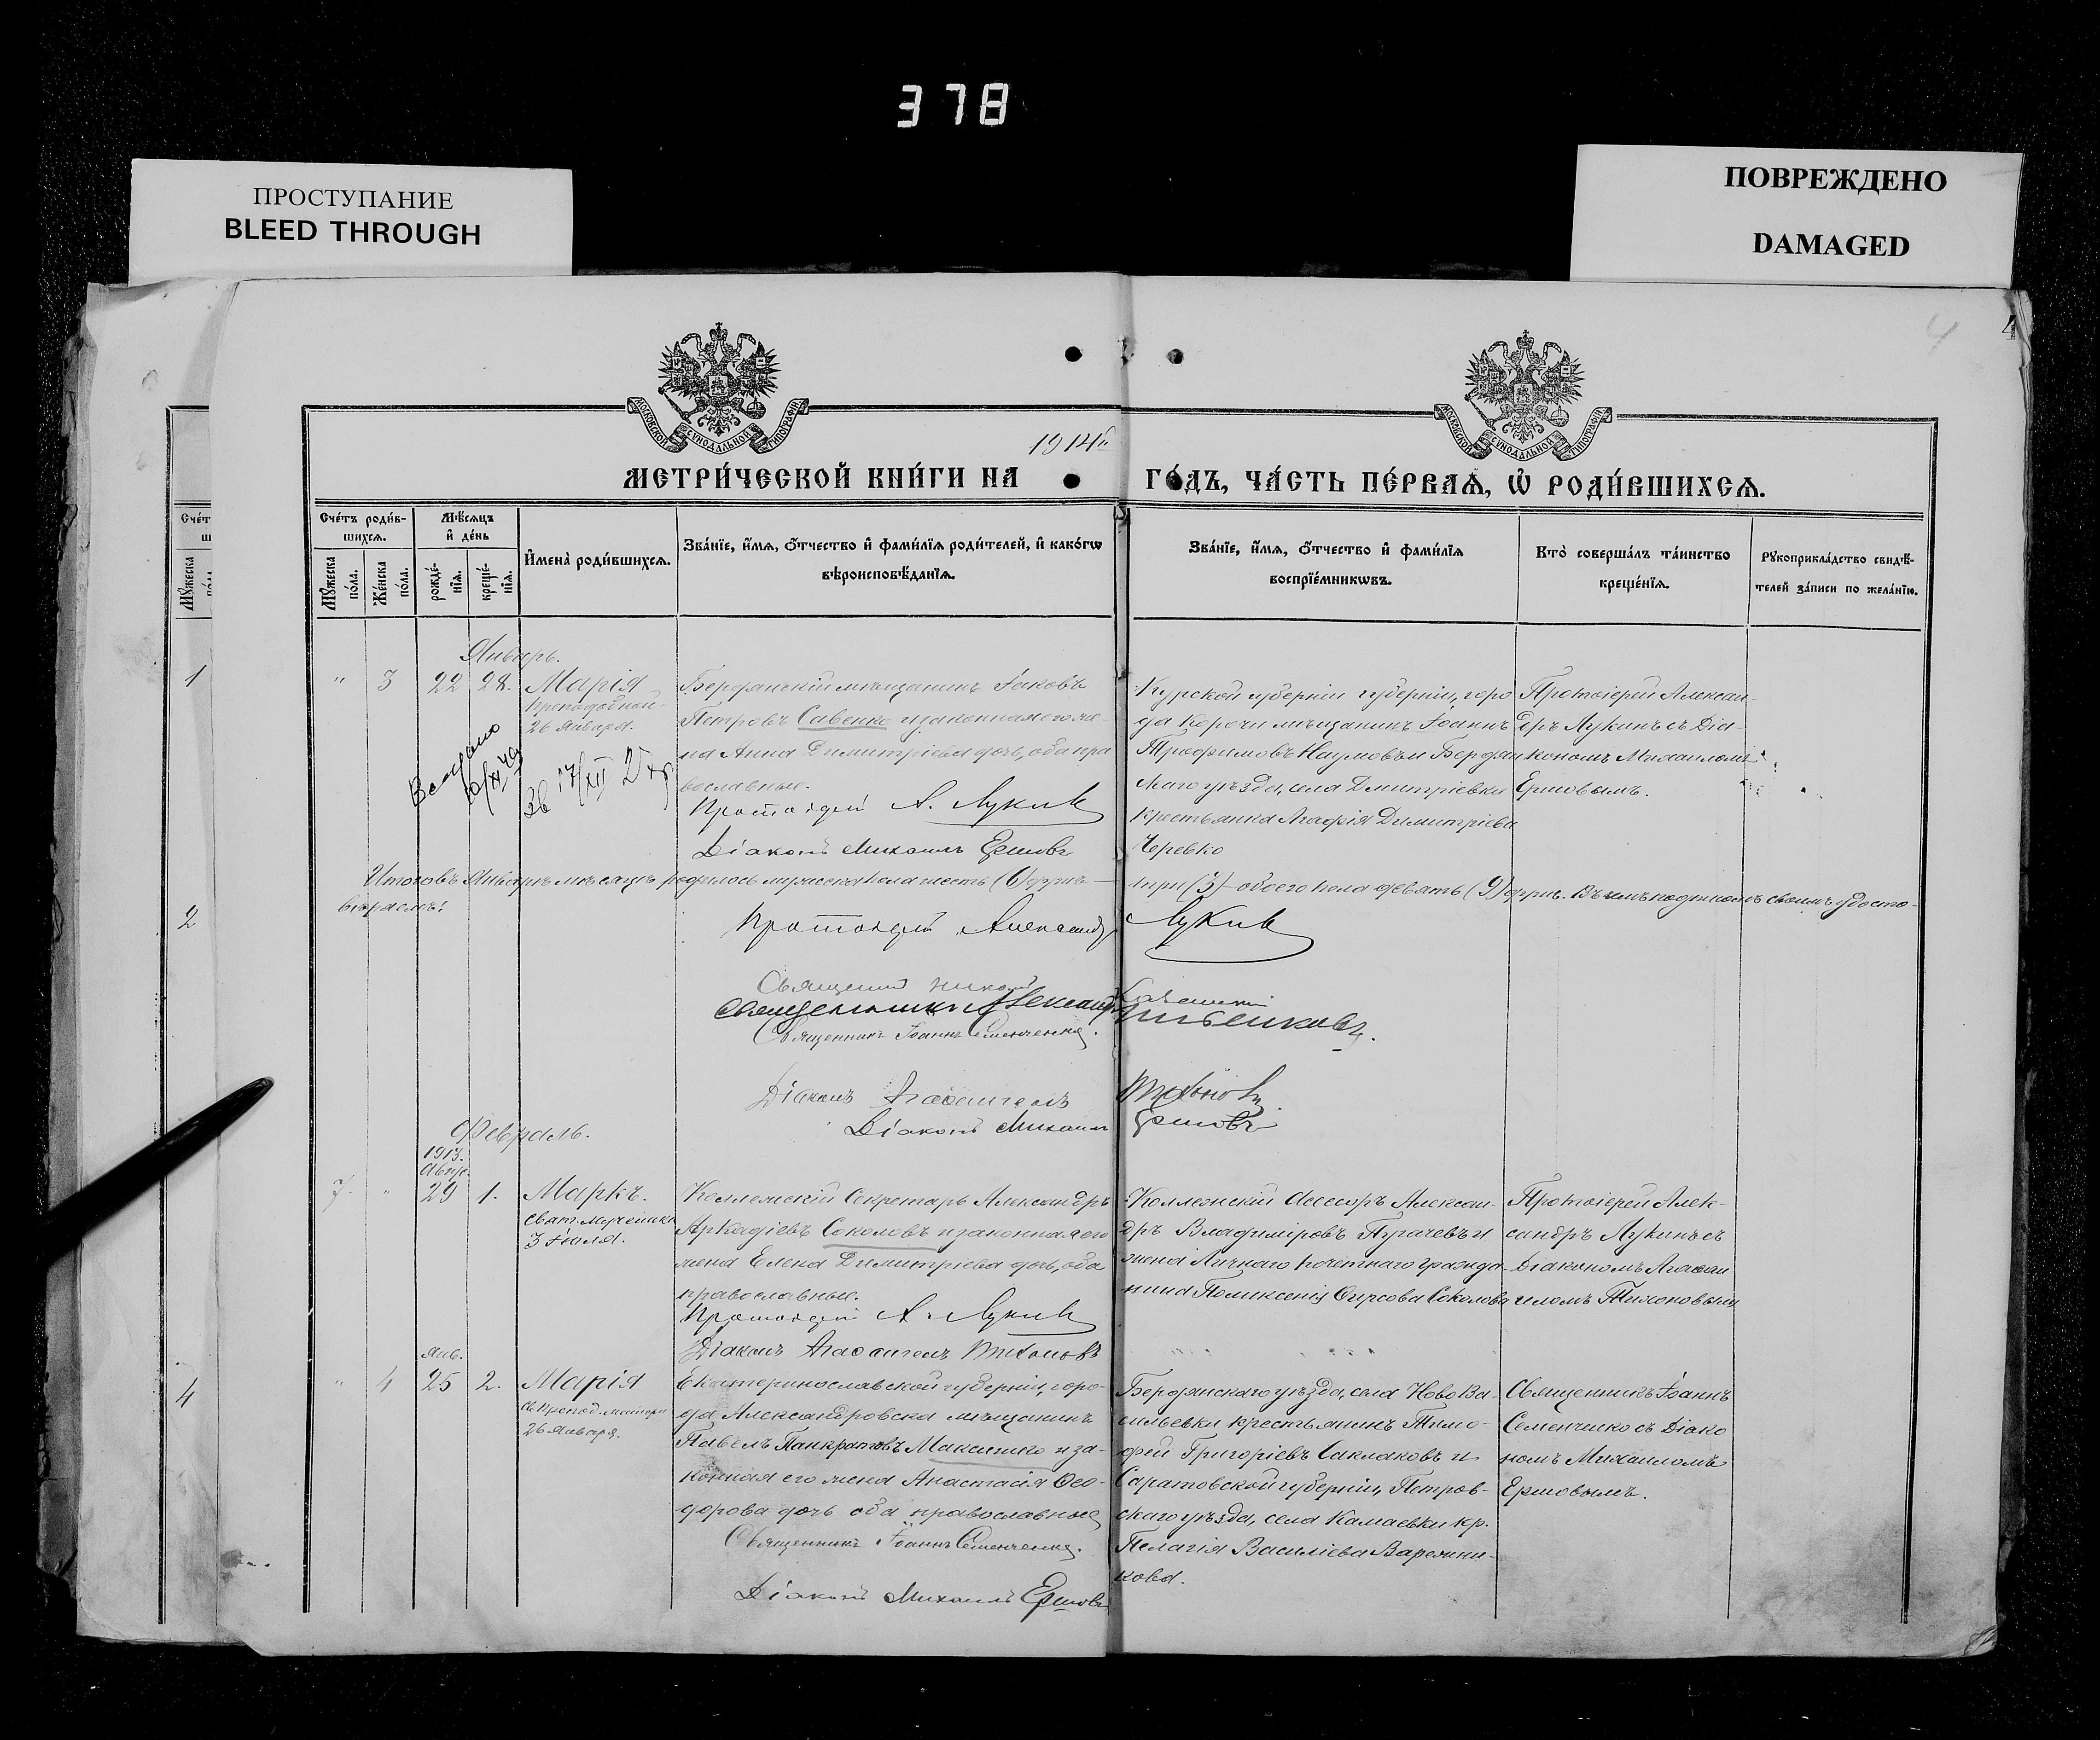 378
ПРОСТУПАНИЕ
BLEED THROUGH
ПОВРЕЖДЕНО
DAMAGED
4
4
МОСКОВСКОЙ СѴНОДАЛЬНОЙ ТИПОГРАФІИ
МОСКОВСКОЙ СѴНОДАЛЬНОЙ ТИПОГРАФІИ
1914
МЕТРИ́ЧЕСКОЙ КНИ́ГИ НА ГО́ДЪ, ЧА́СТЬ ПЕ́РВАѦ, Ѡ҆ РОДИ́ВШИХСѦ.
Сче́т
ш
Мꙋжеска
1
2
4
Сче́тъ роди́в-
шихсѧ.
Мѣ́сѧцъ
и҆ де́нь
Мꙋжеска по́ла.
Же́нска по́ла.
рожде́-нїѧ.
креще́-нїѧ.
И҆мена̀ роди́вшихсѧ.
Зва́нїе, и҆́мѧ, ѻ҆́тчество и҆ фами́лїѧ роди́телей, и҆ како́гѡ
вѣроисповѣ́данїѧ.
Зва́нїе, и҆́мѧ, ѻ҆́тчество и҆ фами́лїѧ
воспрїе́мникѡвъ.
Кто̀ соверша́лъ та́инство
креще́нїѧ.
Рꙋкоприкла́дство свидѣ́-
телей за́писи по жела́нїю.
Январь.
" 3 22 28. Марія
Преподобной
26 Января.
Бердянскій мѣщанинъ Іаковъ
Петровъ Савенко и законная его же-
на Анна Димитріева дочь, оба пра
вославные.
Протоіерей А. Лукинъ
Діаконъ Михаилъ Ершовъ
Курской губерніи губерніи, горо
да Корочи мѣщанинъ Іоаннъ
Трофимовъ Наумовъ и Бердян
скаго уѣзда, села Дмитріевки
крестьянка Агафія Димитріева
Черевко
Протоіерей Алексан-
дръ Лукинъ съ Діа-
кономъ Михаиломъ
Ершовымъ.
Выдано
17/XII
Итого въ Январѣ мѣсяцѣ родилось мужеска пола шесть (6) женска три (3) обоего пола девять (9) душъ. Въ чемъ подписомъ своимъ удосто-
вѣряемъ:
Протоіерей Александръ Лукинъ
Священникъ
Священникъ Александръ
Священникъ Іоаннъ Семенченко.
Діаконъ Агафангелъ Тихоновъ
Діаконъ Михаилъ Ершовъ
Февраль.
1913.
7. " 29 1. Маркъ.
3 Іюля.
Коллежскій Секретарь Александръ
Аркадіевъ Соколовъ и законная его
жена Елена Димитріева дочь, оба
православные.
Протоіерей А. Лукинъ
Діаконъ Агафангелъ Тихоновъ
Коллежскій Ассесоръ Алексан-
дръ Владиміровъ Пугачевъ и
жена Личнаго почетнаго гражда-
нина Поликсенія Фирсова Соколова
Протоіерей Алек-
сандръ Лукинъ съ
Діакономъ Агафан
гиломъ Тихоновымъ
Янв.
" 4 25 2. Марія
26 Января.
Екатеринославской губерніи, горо-
да Александровска мѣщанинъ
Павелъ Панкратовъ Максимко и за-
конная его жена Анастасія Ѳео-
дорова дочь оба православные
Священникъ Іоаннъ Семенченко.
Діаконъ Михаилъ Ершовъ
Бердянскаго уѣзда, села Ново Ва-
сильевки крестьянинъ Тимо-
фей Григоріевъ Саклаковъ и
Саратовской губерніи, Петров-
скаго уѣзда, села Камаевки кр.
Пелагія Василіева Варежни-
кова.
Священникъ Іоаннъ
Семенченко съ Діако
номъ Михаиломъ
Ершовымъ.